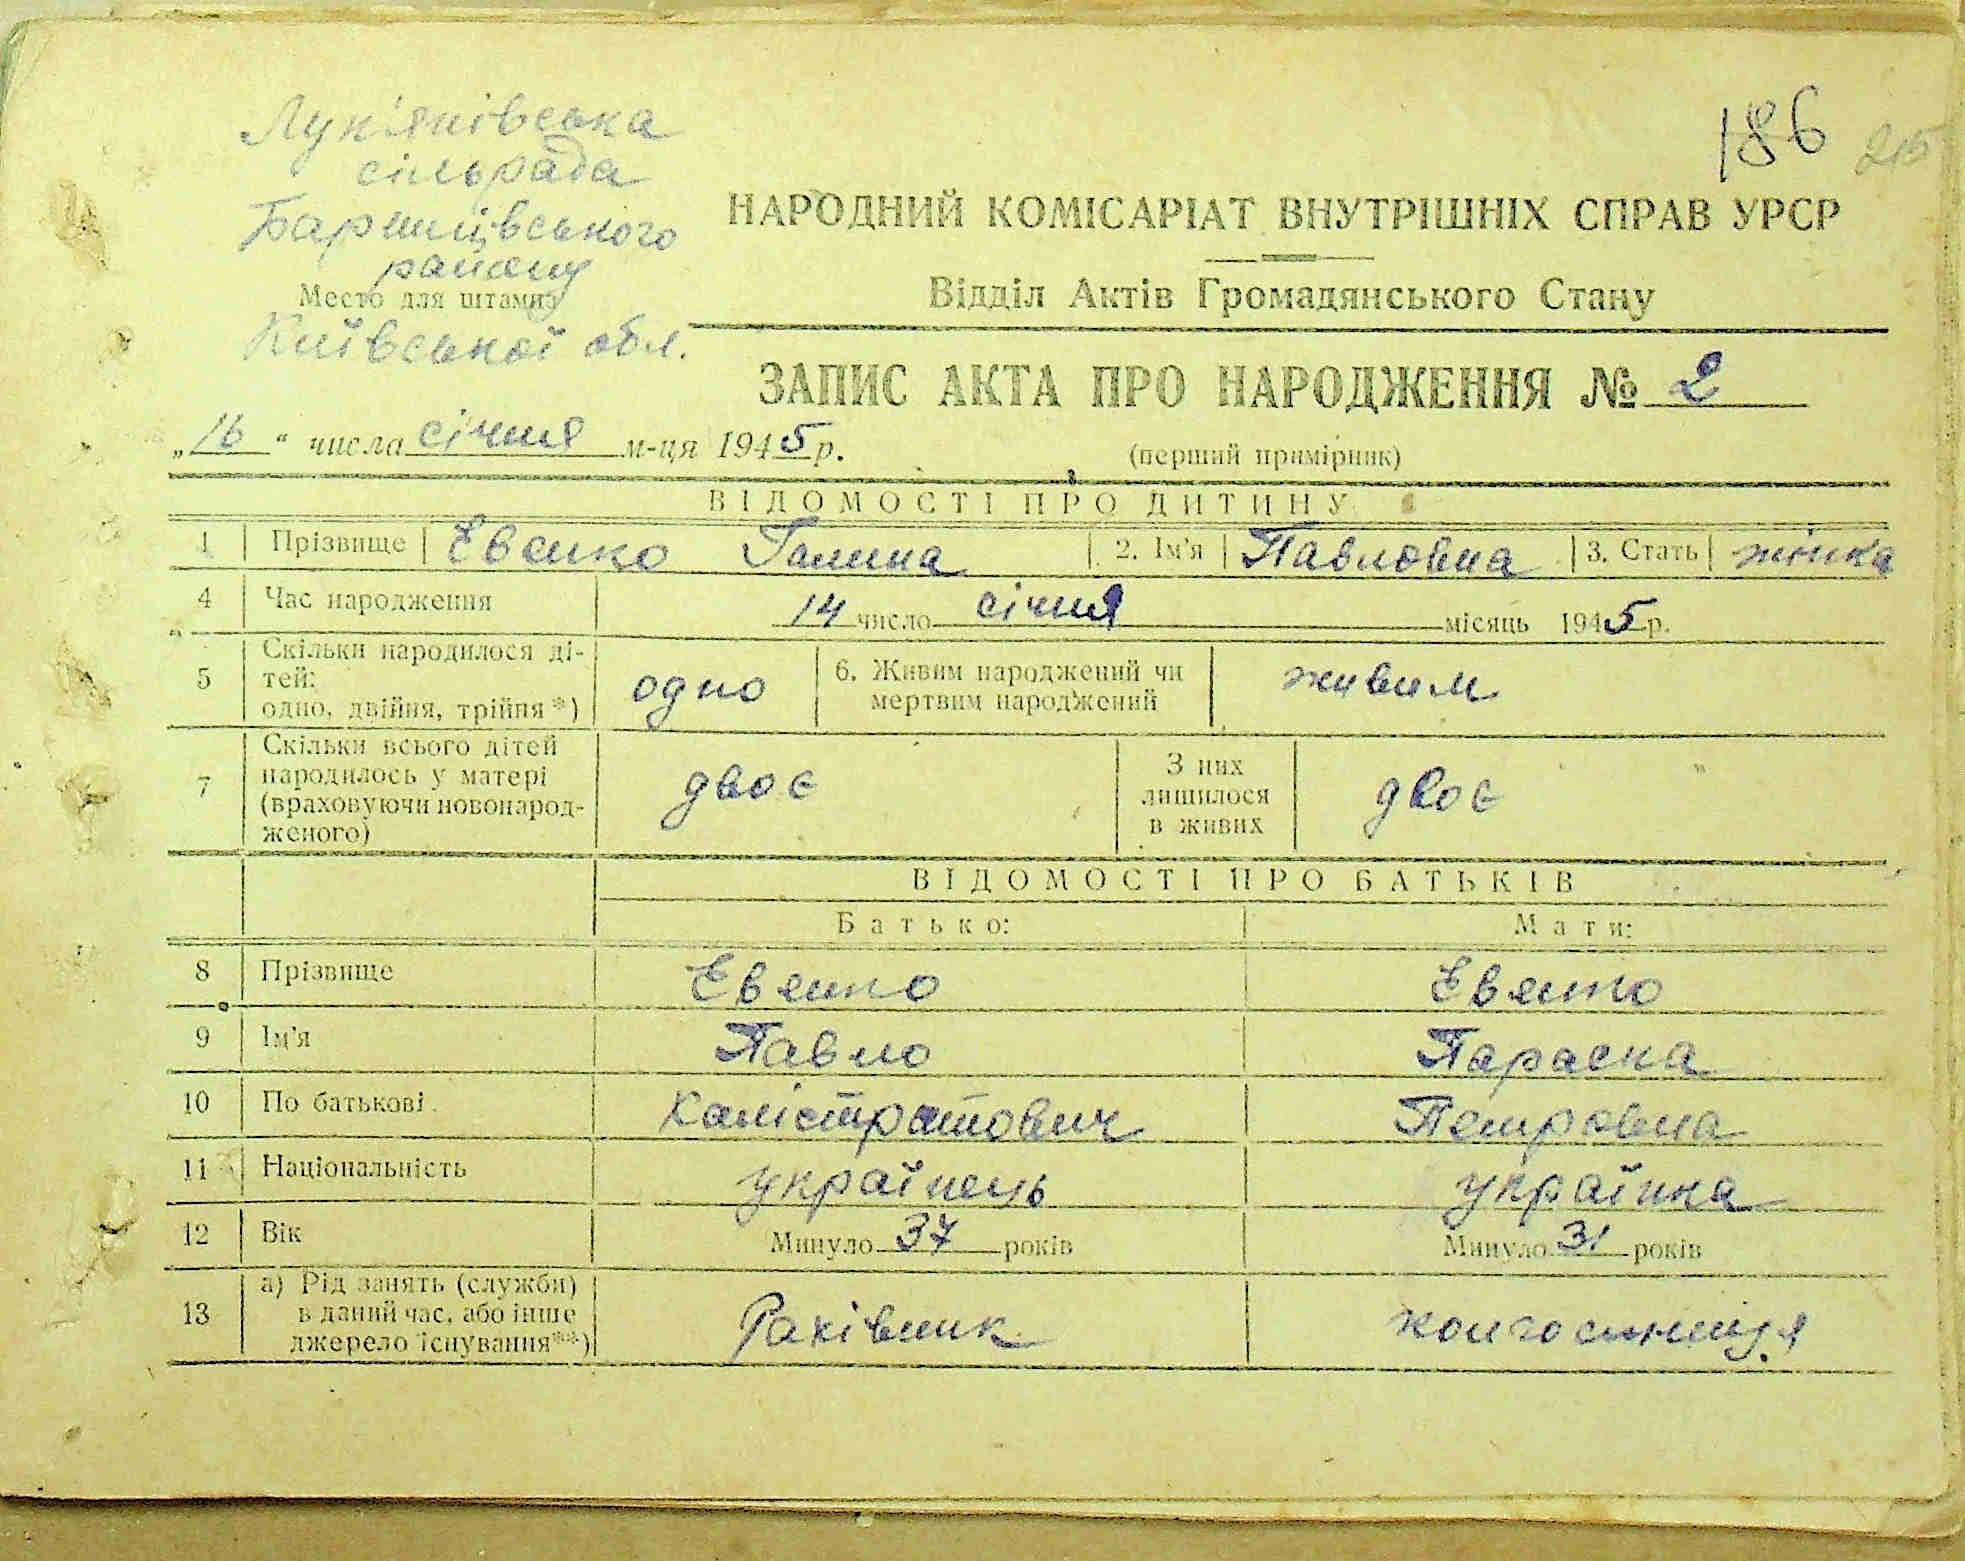 Лук'янівська
сільрада
Баришівського
району
Место для штампа
Київської обл.
186 215
НАРОДНИЙ КОМІСАРІАТ ВНУТРІШНІХ СПРАВ УРСР
Відділ Актів Громадянського Стану
ЗАПИС АКТА ПРО НАРОДЖЕННЯ № 2
„16" числа січня м-ця 1945 р.
(перший примірник)
ВІДОМОСТІ ПРО ДИТИНУ
1 Прізвище Євенко Галина 2. Ім'я Павловна 3. Стать жінка
4 Час народження 14 число січня місяць 1945 р.
5 Скільки народилося ді-
тей:
одно, двійня, трійня *) одно 6. Живим народжений чи
мертвим народжений живим
7 Скільки всього дітей
народилось у матері
(враховуючи новонарод-
женого) двоє З них
лишилося
в живих двоє
ВІДОМОСТІ ПРО БАТЬКІВ
Батько: Мати:
8 Прізвище Євенко Євенко
9 Ім'я Павло Параска
10 По батькові Калістратович Петровна
11 Національність українець українка
12 Вік Минуло 37 років Минуло 31 років
13 а) Рід занять (служби)
в даний час, або інше
джерело існування**) Рахівник колгоспниця